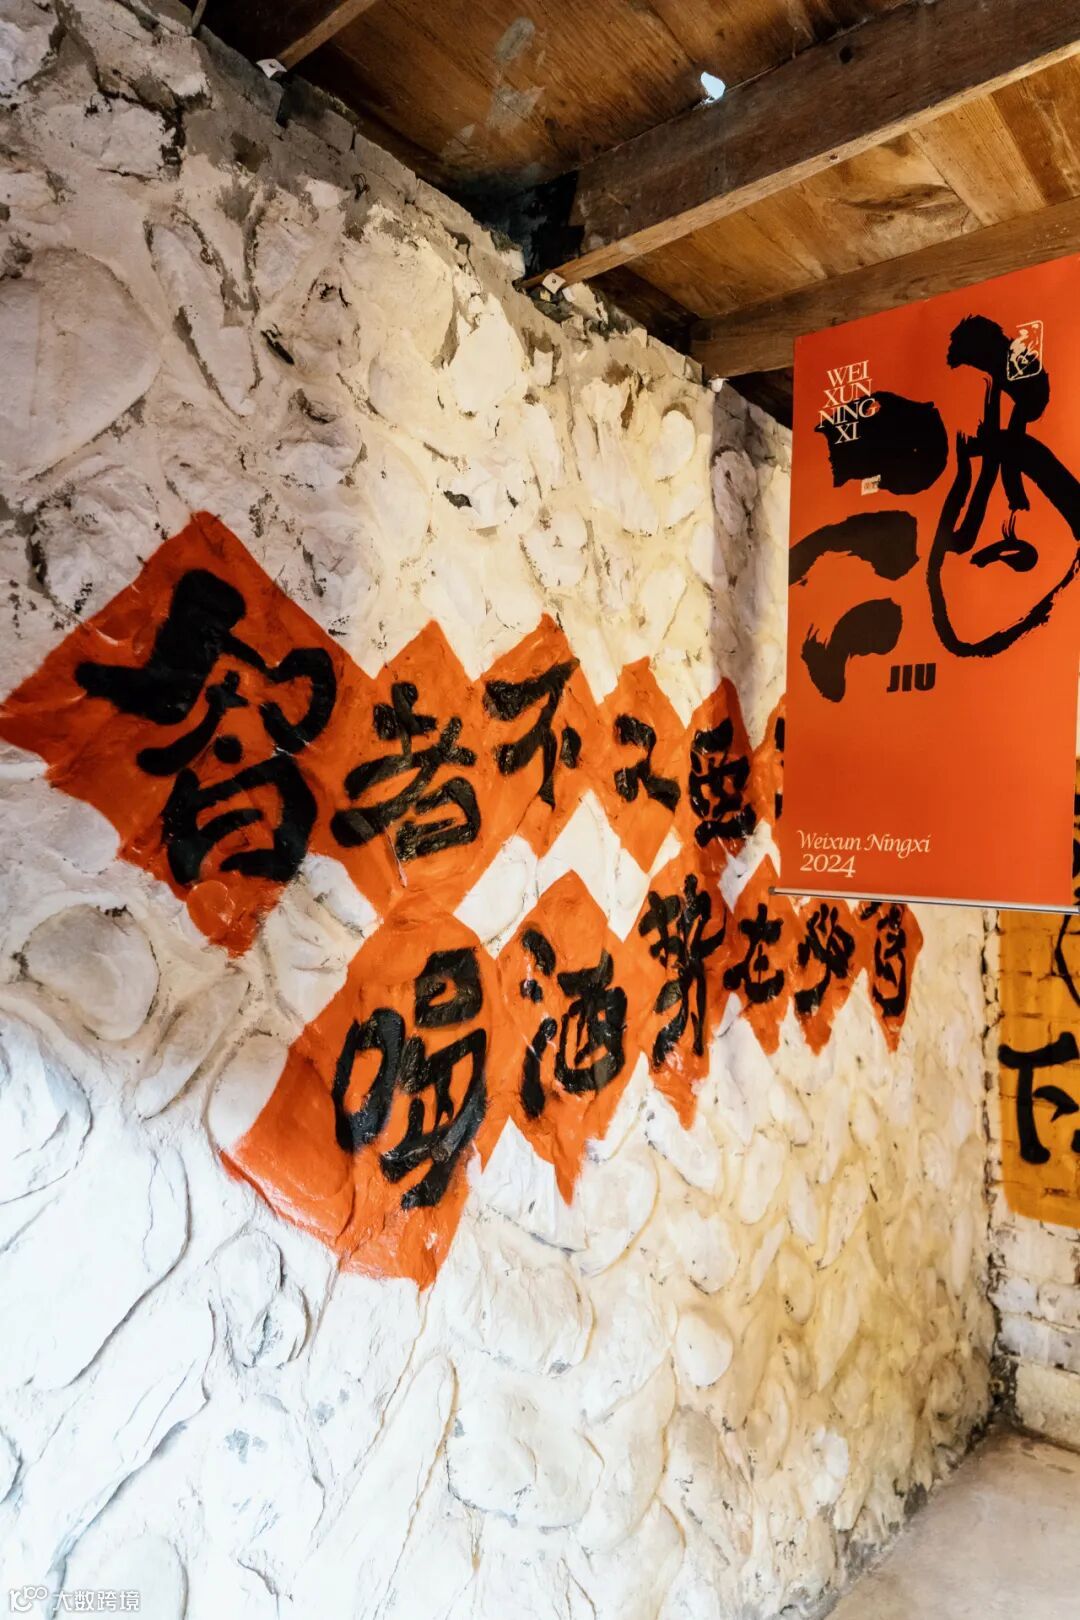 智者不入
喝酒势在必
WEI
XUN
NING
XI
酒
JIU
Weixun Ningxi
2024
下
大数跨境